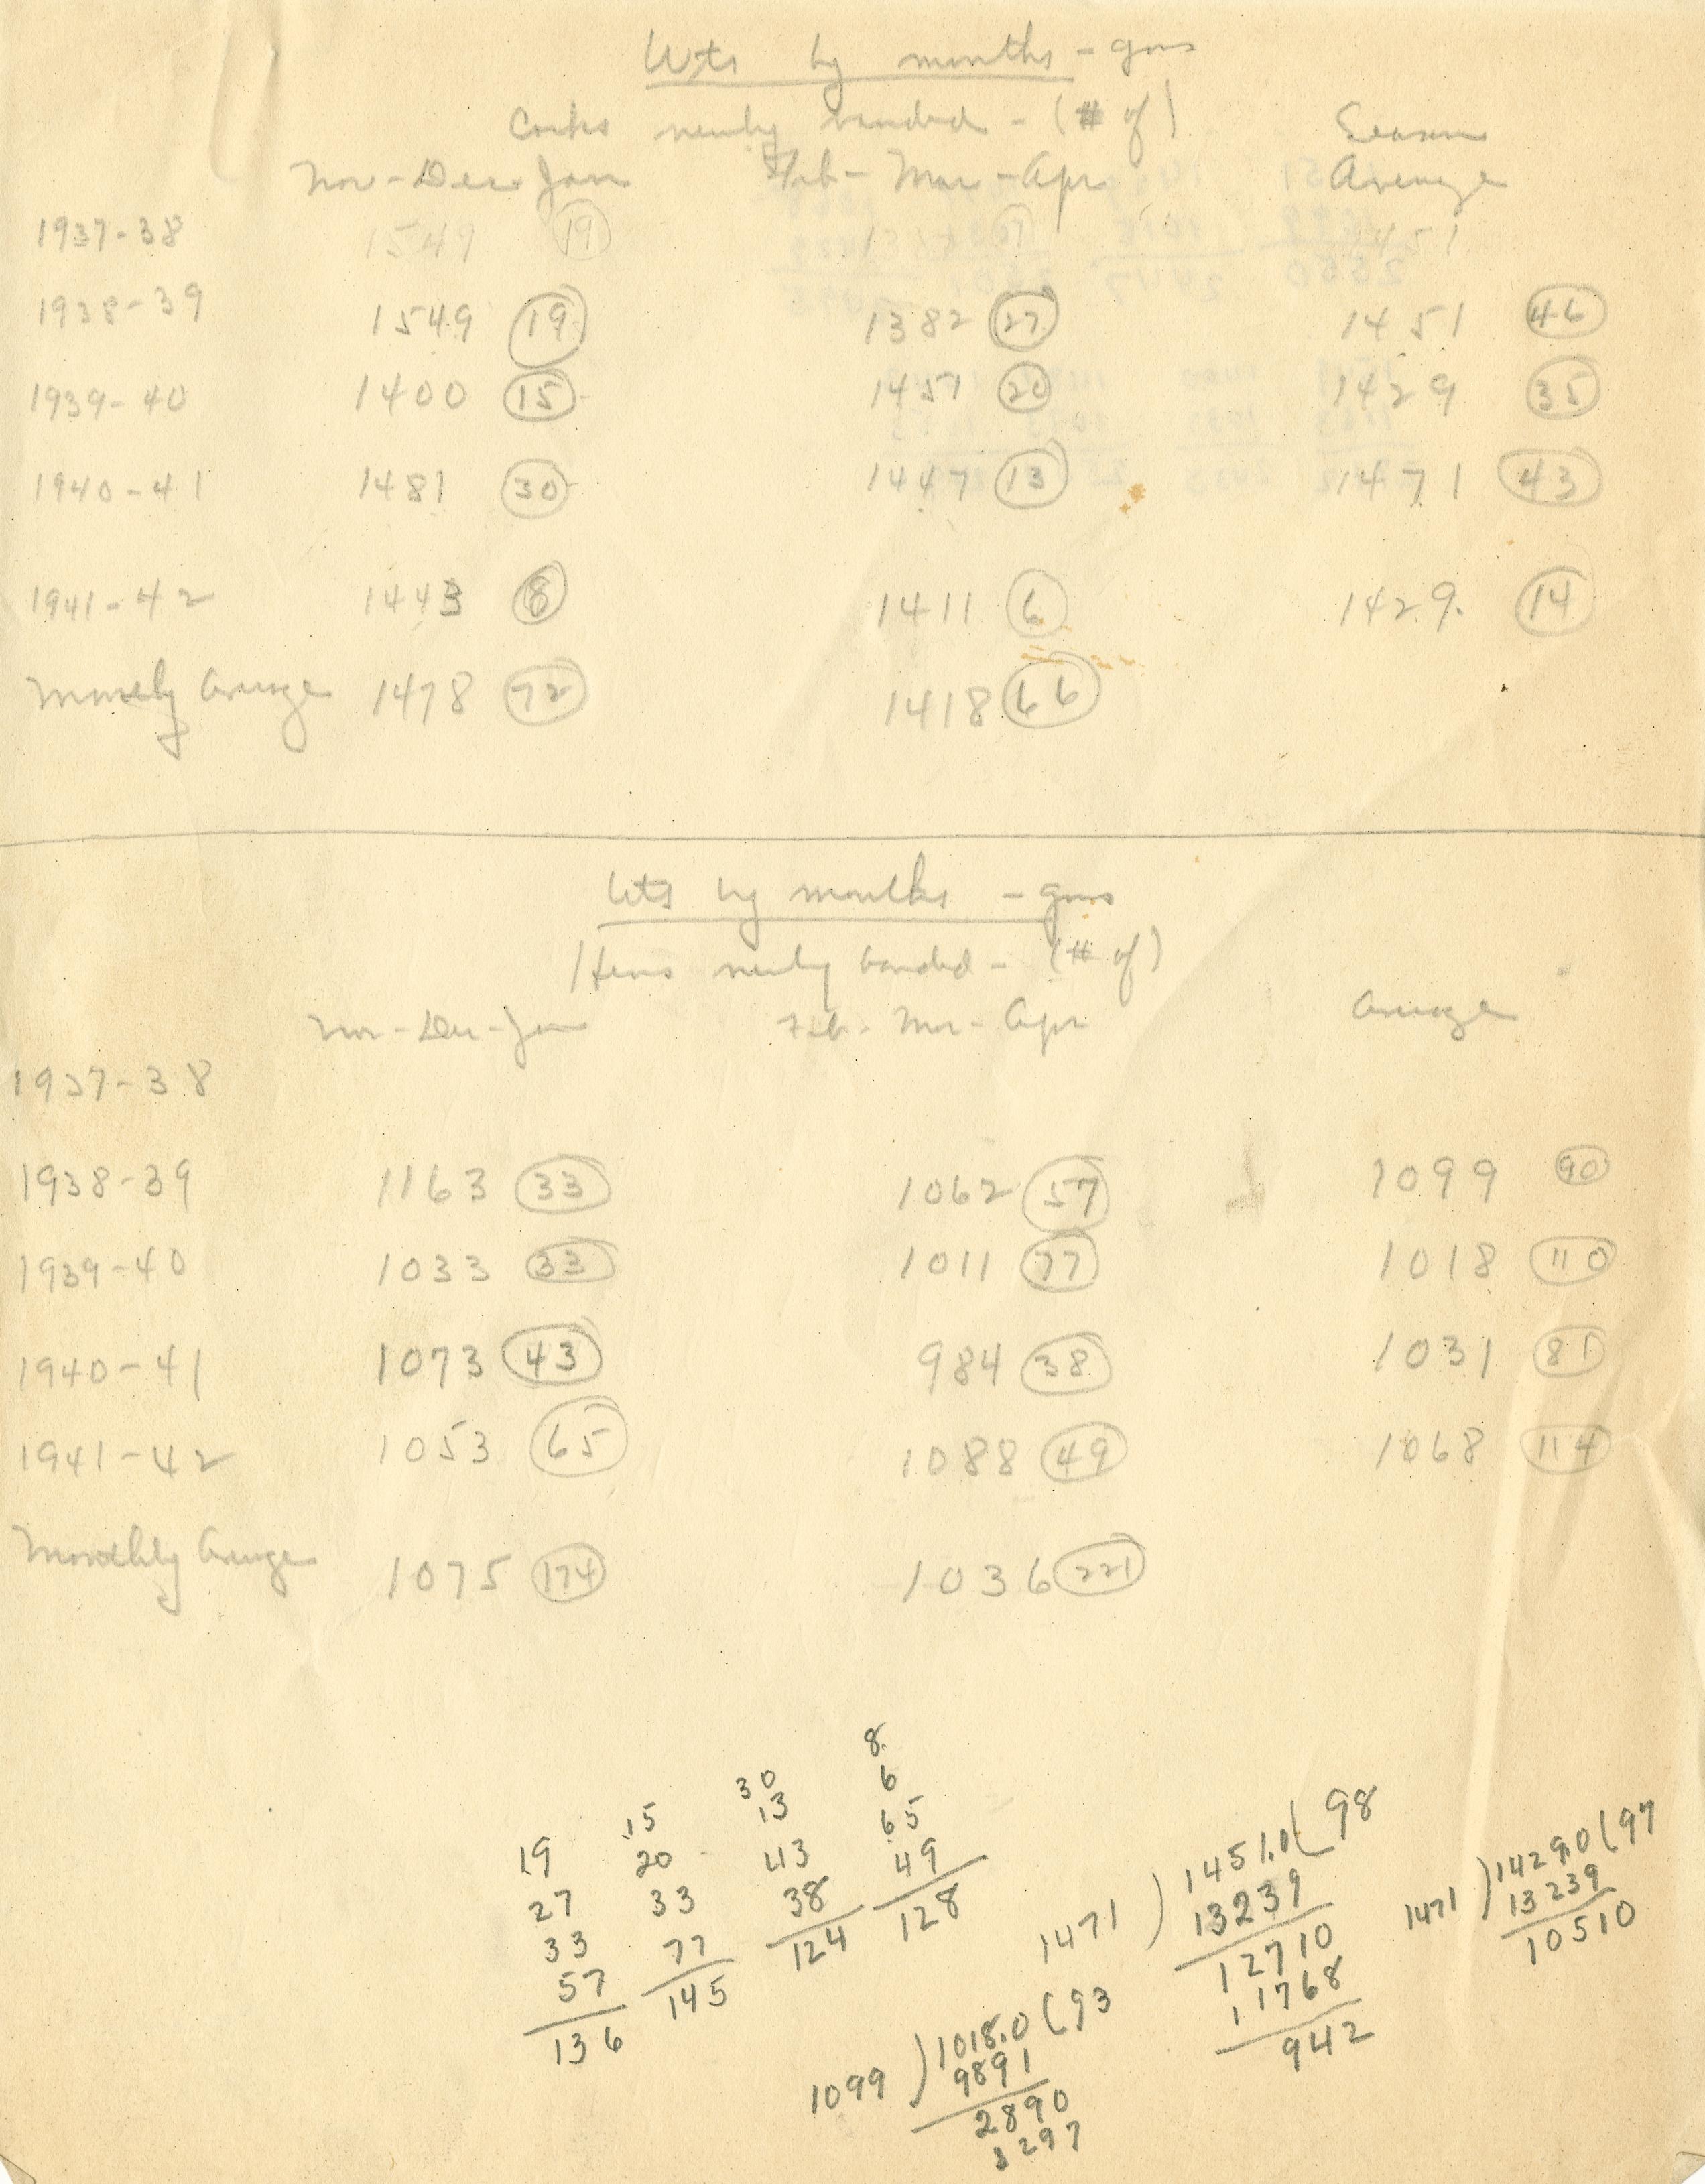 Wts by months - gms
Cocks newly banded - (# of)
Season
Nov - Dec - Jan Feb - Mar - Apr Average
1937-38 1549 (19) 1451
1938-39 1549 (19) 1382 (27) 1451 (46)
1939-40 1400 (15) 1451 (20) 1429 (35)
1940-41 1481 (30) 1447 (13) 1471 (43)
1941-42 1443 (8) 1411 (6) 1429. (14)
Monthly Average 1478 (72) 1418 (66)
Wts by months - gms
Hens newly banded - (# of)
Nov - Dec - Jan Feb - Mar - Apr Average
1937-38
1938-39 1163 (33) 1062 (57) 1099 (90)
1939-40 1033 (33) 1011 (77) 1018 (110)
1940-41 1073 (43) 984 (38) 1031 (81)
1941-42 1053 (65) 1088 (49) 1068 (114)
Monthly Average 1075 (174) 1036 (221)
19
27
33
57
136
15
20
33
77
145
30
13
43
38
124
8
6
65
49
128
1471 ) 1451.0 ( 98
13239
12710
11768
942
1471 ) 1429.0 ( 97
13239
10510
1099 ) 1018.0 ( 93
9891
2890
3297